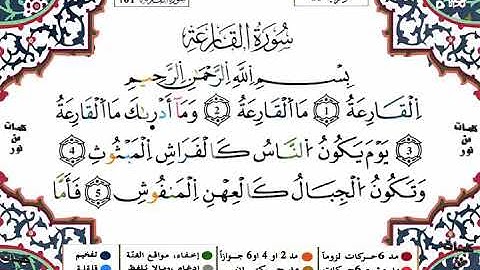 سُورَةُ الْقَارِعَةِ
بِسْمِ اللَّهِ الرَّحْمَٰنِ الرَّحِيمِ
الْقَارِعَةُ ١ مَا الْقَارِعَةُ ٢ وَمَا أَدْرَاكَ مَا الْقَارِعَةُ
٣ يَوْمَ يَكُونُ النَّاسُ كَالْفَرَاشِ الْمَبْثُوثِ ٤
وَتَكُونُ الْجِبَالُ كَالْعِهْنِ الْمَنْفُوشِ ٥ فَأَمَّا
كلمات
من
نور
مد ٦ حركات لزوماً مد ٢ أو ٤ أو ٦ جوازاً إخفاء، ومواقع الغنّة تفخيم
قلقلة